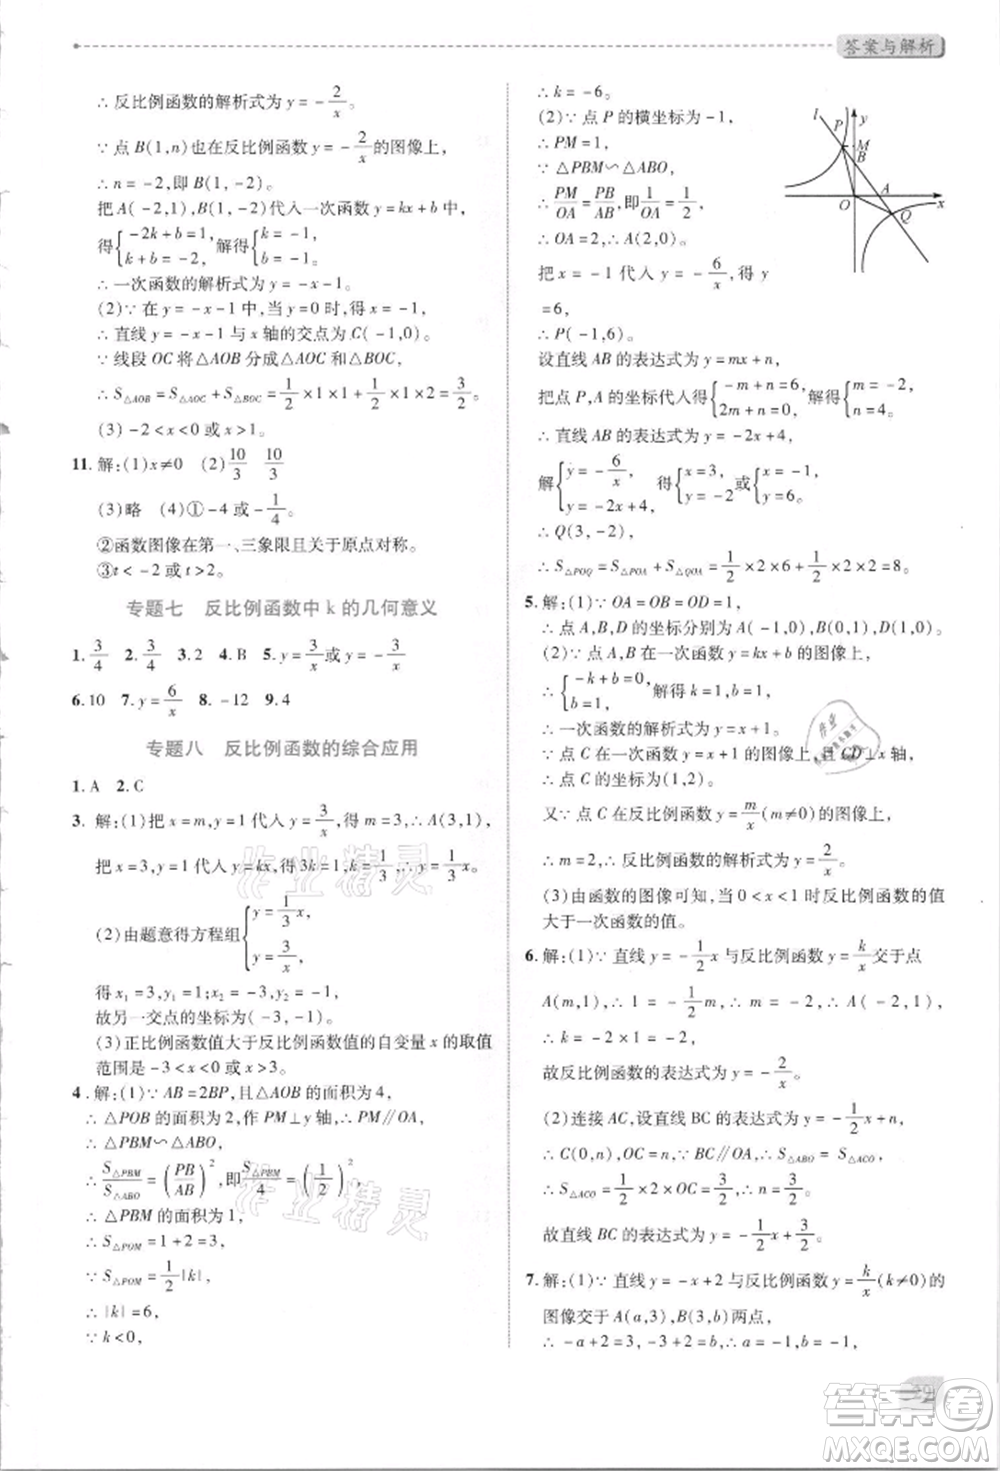 答案与解析
∴反比例函数的解析式为 y=-2/x。
∵点 B(1,n)也在反比例函数 y=-2/x 的图像上,
∴n=-2,即 B(1,-2)。
把 A(-2,1),B(1,-2)代入一次函数 y=kx+b 中,
得{-2k+b=1, k+b=-2, 解得{k=-1, b=-1。
∴一次函数的解析式为 y=-x-1。
(2)∵在 y=-x-1 中,当 y=0 时,得 x=-1,
∴直线 y=-x-1 与 x 轴的交点为 C(-1,0)。
∵线段 OC 将△AOB 分成△AOC 和△BOC,
∴S△AOB=S△AOC+S△BOC=1/2×1×1+1/2×1×2=3/2。
(3)-2<x<0 或 x>1。
11.解:(1)x≠0 (2)10/3 10/3
(3)略 (4)①-4 或-1/4。
②函数图像在第一、三象限且关于原点对称。
③t<-2 或 t>2。
专题七 反比例函数中 k 的几何意义
1.3/4 2.3/4 3.2 4.B 5.y=3/x 或 y=-3/x
6.10 7.y=6/x 8.-12 9.4
专题八 反比例函数的综合应用
1.A 2.C
3.解:(1)把 x=m,y=1 代入 y=3/x,得 m=3,∴A(3,1),
把 x=3,y=1 代入 y=kx,得 3k=1,∴k=1/3,∴y=1/3x。
(2)由题意得方程组{y=1/3x, y=3/x,
得 x₁=3,y₁=1;x₂=-3,y₂=-1。
故另一交点的坐标为(-3,-1)。
(3)正比例函数值大于反比例函数值的自变量 x 的取值
范围是-3<x<0 或 x>3。
4.解:(1)∵AB=2BP,且△AOB 的面积为 4,
∴△POB 的面积为 2,作 PM⊥y 轴,∴PM∥OA,
∴△PBM∽△ABO,
∴S△PBM/S△ABO=(PB/AB)²,即S△PBM/4=(1/2)²,
∴△PBM 的面积为 1,
∴S△POM=1+2=3。
∵S△POM=1/2|k|,
∴|k|=6,
∵k<0,
∴k=-6。
(2)∵点 P 的横坐标为-1,
∴PM=1,
∵△PBM∽△ABO,
∴PM/OA=PB/AB,即1/OA=1/2,
∴OA=2,∴A(2,0)。
把 x=-1 代入 y=-6/x,得 y
=6,
∴P(-1,6)。
l
P
y
M
B
O
A
x
Q
设直线 AB 的表达式为 y=mx+n,
把点 P,A 的坐标代入得{-m+n=6, 2m+n=0,解得{m=-2, n=4。
∴直线 AB 的表达式为 y=-2x+4,
解{y=-6/x, y=-2x+4, 得{x=3, y=-2或{x=-1, y=6。
∴Q(3,-2),
∴S△POQ=S△POA+S△QOA=1/2×2×6+1/2×2×2=8。
5.解:(1)∵OA=OB=OD=1,
∴点 A,B,D 的坐标分别为 A(-1,0),B(0,1),D(1,0)。
(2)∵点 A,B 在一次函数 y=kx+b 的图像上,
∴{-k+b=0, b=1, 解得 k=1,b=1,
∴一次函数的解析式为 y=x+1。
∵点 C 在一次函数 y=x+1 的图像上,且 CD⊥x 轴,
∴点 C 的坐标为(1,2)。
又∵点 C 在反比例函数 y=m/x(m≠0)的图像上,
∴m=2,∴反比例函数的解析式为 y=2/x。
(3)由函数的图像可知,当 0<x<1 时反比例函数的值
大于一次函数的值。
6.解:(1)∵直线 y=-1/2x 与反比例函数 y=k/x 交于点
A(m,1),∴1=-1/2m,∴m=-2,∴A(-2,1),
∴k=-2×1=-2,
故反比例函数的表达式为 y=-2/x。
(2)连接 AC,设直线 BC 的表达式为 y=-1/2x+n,
∴C(0,n),∵BC∥OA,∴S△ABO=S△ACO,
∴S△ACO=1/2×2×OC=3/2,∴n=3/2,
故直线 BC 的表达式为 y=-1/2x+3/2。
7.解:(1)∵直线 y=-x+2 与反比例函数 y=k/x(k≠0)的
图像交于 A(a,3),B(3,b)两点,
∴-a+2=3,-3+2=b,∴a=-1,b=-1,
作业精灵
作业精灵
答案卷
MXQE.COM